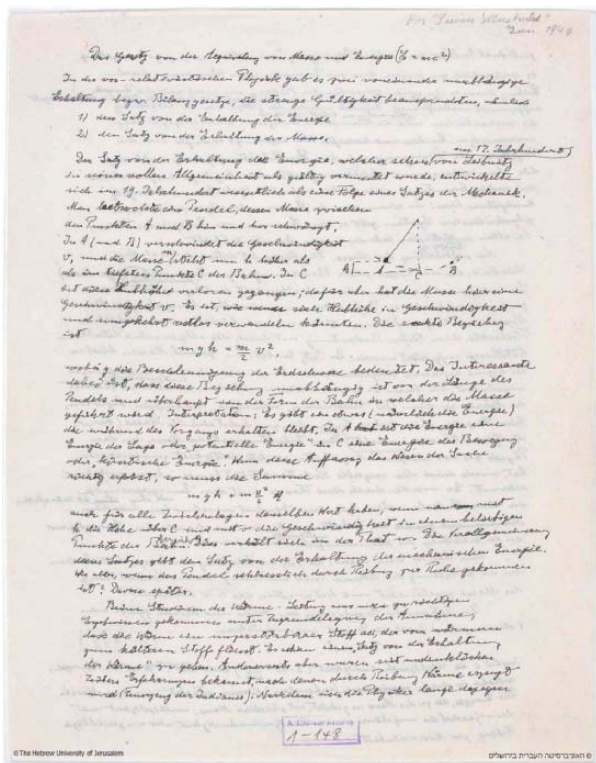 For "Science Illustrated"
Jan. 1946
Das Gesetz von der Aequivalenz von Masse und Energie (E = mc²)
In der vor-relativistischen Physik gab es zwei voneinander unabhängige
Erhaltung bezw. Bilanzgesetze, die strenge Gültigkeit beanspruchten, nämlich
1) den Satz von der Erhaltung der Energie
2) den Satz von der Erhaltung der Masse.
im 17. Jahrhundert
Der Satz von der Erhaltung der Energie, welcher schon von Leibnitz
in seiner vollen Allgemeinheit als gültig vermutet wurde, entwickelte
sich im 19. Jahrhundert wesentlich als eine Folge eines Satzes der Mechanik.
Man betrachte ein Pendel, dessen Masse zwischen
den Punkten A und B hin und her schwingt.
In A (und B) verschwindet die Geschwindigkeit
v, und die Masse m steht um h höher als
als im tiefsten Punkte C der Bahn. In C
A B
ist diese Hubhöhe verloren gegangen; dafür aber hat die Masse hier eine
Geschwindigkeit v. Es ist, wie sich Hubhöhe in Geschwindigkeit
und umgekehrt restlos verwandeln könnten. Die exakte Beziehung
ist
m g h = m/2 v²,
wobei g die Beschleunigung der Erdschwere bedeutet. Das Interessante
dabei ist, dass diese Beziehung unabhängig ist von der Länge des
Pendels und überhaupt von der Form der Bahn in welcher die Masse
geführt wird. Interpretation: Es gibt ein etwas (nämlich die Energie)
die während des Vorgangs erhalten bleibt. In A ist die Energie eine
Energie der Lage oder "potentielle Energie" in C eine Energie der Bewegung
oder "kinetische Energie". Wenn diese Auffassung das Wesen der Sache
richtig erfasst, so muss die Summe
m g h + m v²/2
auch für alle Zwischenlagen denselben Wert haben, wenn man mit
h die Höhe über C und mit v die Geschwindigkeit in einem beliebigen
Punkte der Bahn. Dies verhält sich in der That so. Die Verallgemeinerung
dieses Satzes gibt den Satz von der Erhaltung der mechanischen Energie.
Wie aber, wenn das Pendel schliesslich durch Reibung zur Ruhe gekommen
ist? Davon später.
Beim Studium der Wärme-Leitung war man zu richtigen
Ergebnissen gekommen unter Zugrundelegung der Annahme,
dass die Wärme ein unzerstörbarer Stoff sei, der vom wärmeren
zum kälteren Stoff fliesst. Es schien einen "Satz von der Erhaltung
der Wärme" zu geben. Andererseits aber waren seit undenklichen
Zeiten Erfahrungen bekannt, nach denen durch Reibung Wärme erzeugt
wird (Feuerzeug der Indianer). Nachdem sich die Physiker lange dagegen
1-148
© The Hebrew University of Jerusalem
© האוניברסיטה העברית בירושלים